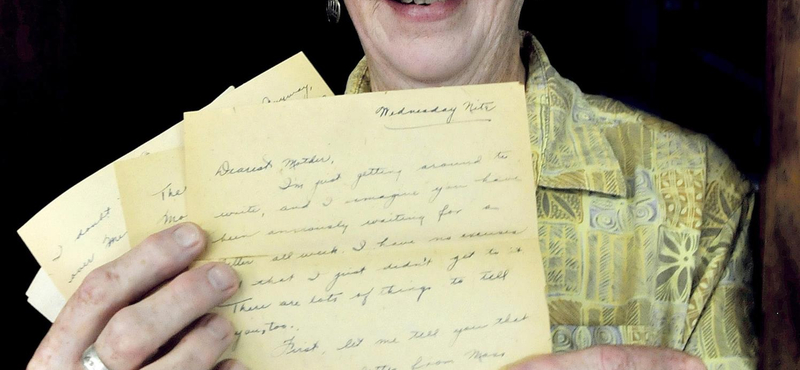 Anyway,
I doubt
over
The
Wednesday Nite
Dearest Mother,
I'm just getting around to
write, and I imagine you have
been anxiously waiting for a
letter all week. I have no excuses
that I just didn't get to it
There are lots of things to tell
you, too.
First, let me tell you that
letter from Mass